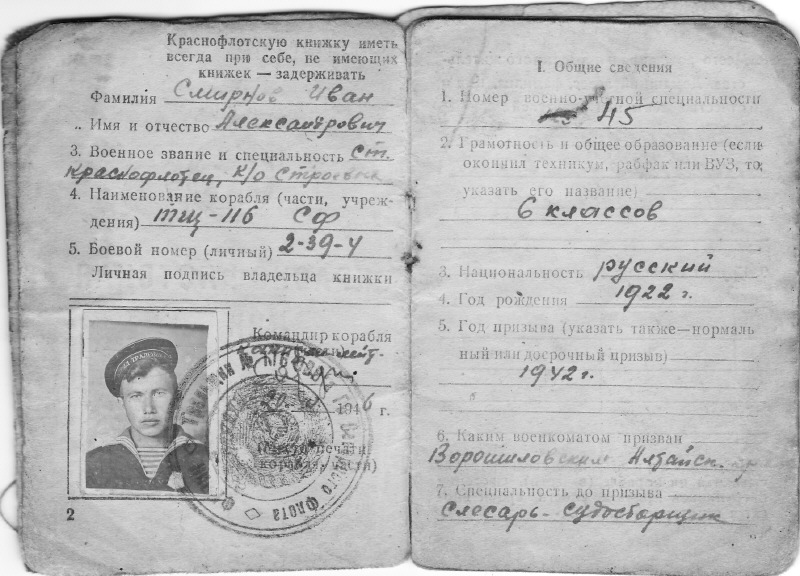 Краснофлотскую книжку иметь
всегда при себе, не имеющих
книжек — задерживать
Фамилия Смирнов Иван
„ Имя и отчество Александрович
3. Военное звание и специальность ст.
краснофлотец,
4. Наименование корабля (части, учреж-
дения) тщ-116 СФ
5. Боевой номер (личный) 2-39-4
Личная подпись владельца книжки
Командир корабля
1946 г.
(Место печати
корабля, части)
2
I. Общие сведения
1. Номер военно-учетной специальности
45
2. Грамотность и общее образование (если
окончил техникум, рабфак или ВУЗ, то
указать его название)
6 классов
3. Национальность русский
4. Год рождения 1922 г.
5. Год призыва (указать также—нормаль
ный или досрочный призыв)
1942 г.
6. Каким военкоматом призван
Ворошиловским Алтайск. кр
7. Специальность до призыва
слесарь-судосборщик